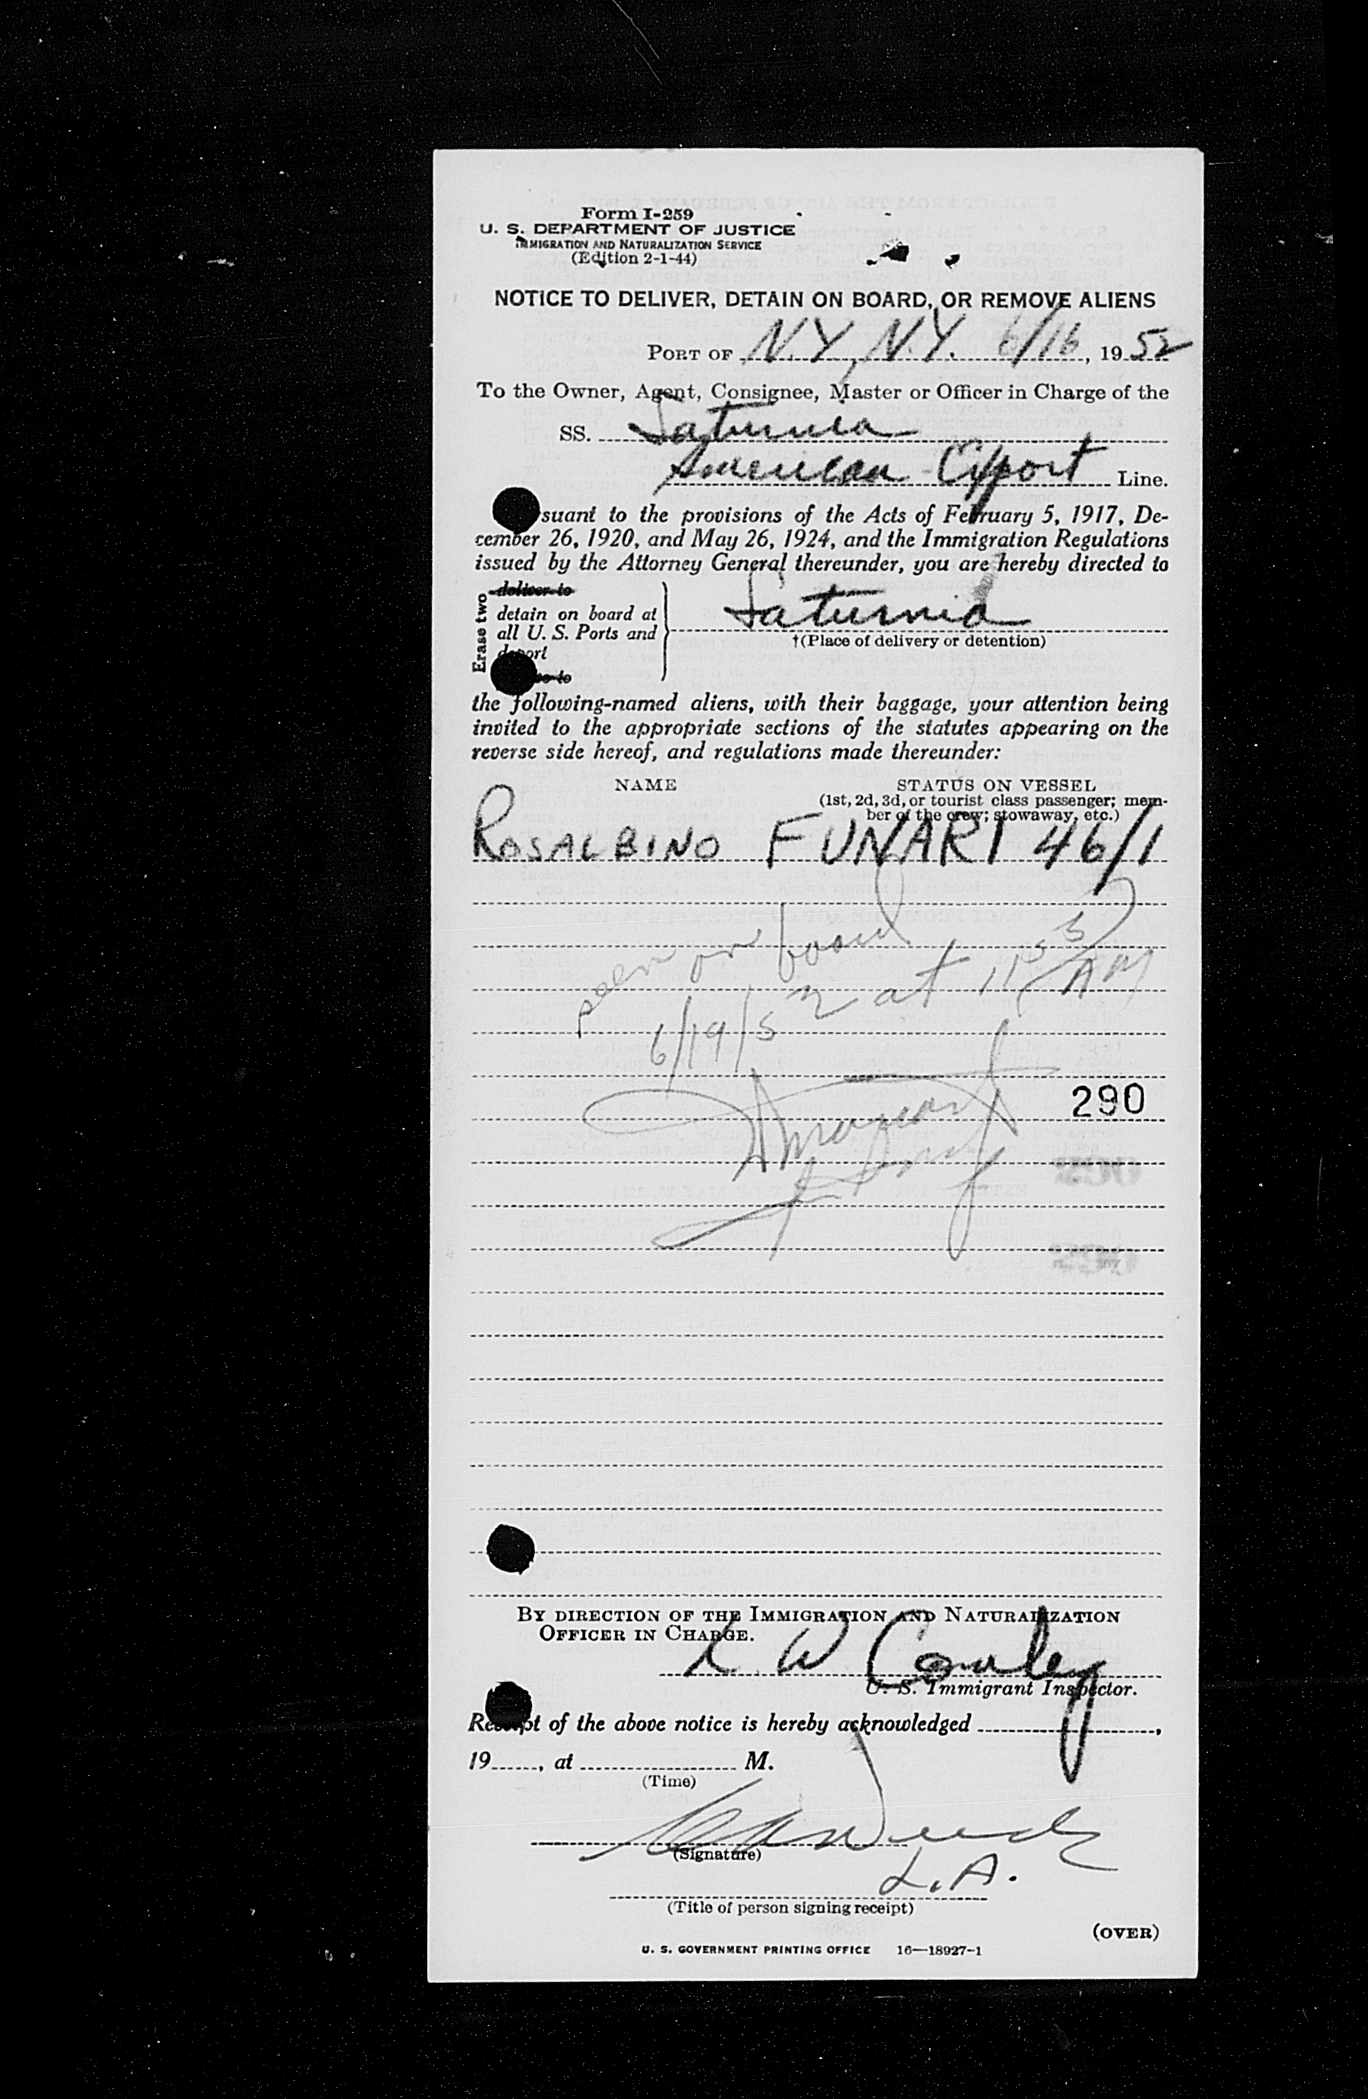 Form I-259
U. S. DEPARTMENT OF JUSTICE
IMMIGRATION AND NATURALIZATION SERVICE
(Edition 2-1-44)
NOTICE TO DELIVER, DETAIN ON BOARD, OR REMOVE ALIENS
PORT OF N.Y., N.Y. 6/16, 1952
To the Owner, Agent, Consignee, Master or Officer in Charge of the
SS. Saturnia
American Export Line.
suant to the provisions of the Acts of February 5, 1917, De-
cember 26, 1920, and May 26, 1924, and the Immigration Regulations
issued by the Attorney General thereunder, you are hereby directed to
Erase two
deliver to
detain on board at
all U. S. Ports and
deport
to
Saturnia
†(Place of delivery or detention)
the following-named aliens, with their baggage, your attention being
invited to the appropriate sections of the statutes appearing on the
reverse side hereof, and regulations made thereunder:
NAME
STATUS ON VESSEL
(1st, 2d, 3d, or tourist class passenger; mem-
ber of the crew; stowaway, etc.)
ROSALBINO FUNARI 46/1
seen on board
6/19/52 at 11 55 AM
290
BY DIRECTION OF THE IMMIGRATION AND NATURALIZATION
OFFICER IN CHARGE.
W Conley
U. S. Immigrant Inspector.
Receipt of the above notice is hereby acknowledged ,
19 , at M.
(Time)
(Signature)
L.A.
(Title of person signing receipt)
(OVER)
U. S. GOVERNMENT PRINTING OFFICE 16—18927-1